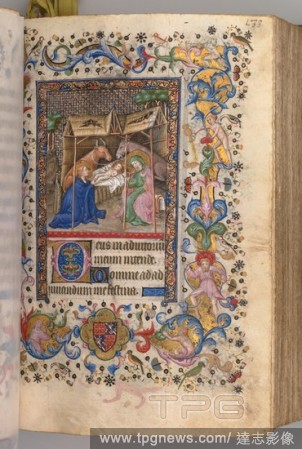 Deus in adiutorium
meum intende.
Domine ad ad
iuuandum me festina.
TPG
www.tpgnews.com/達志影像